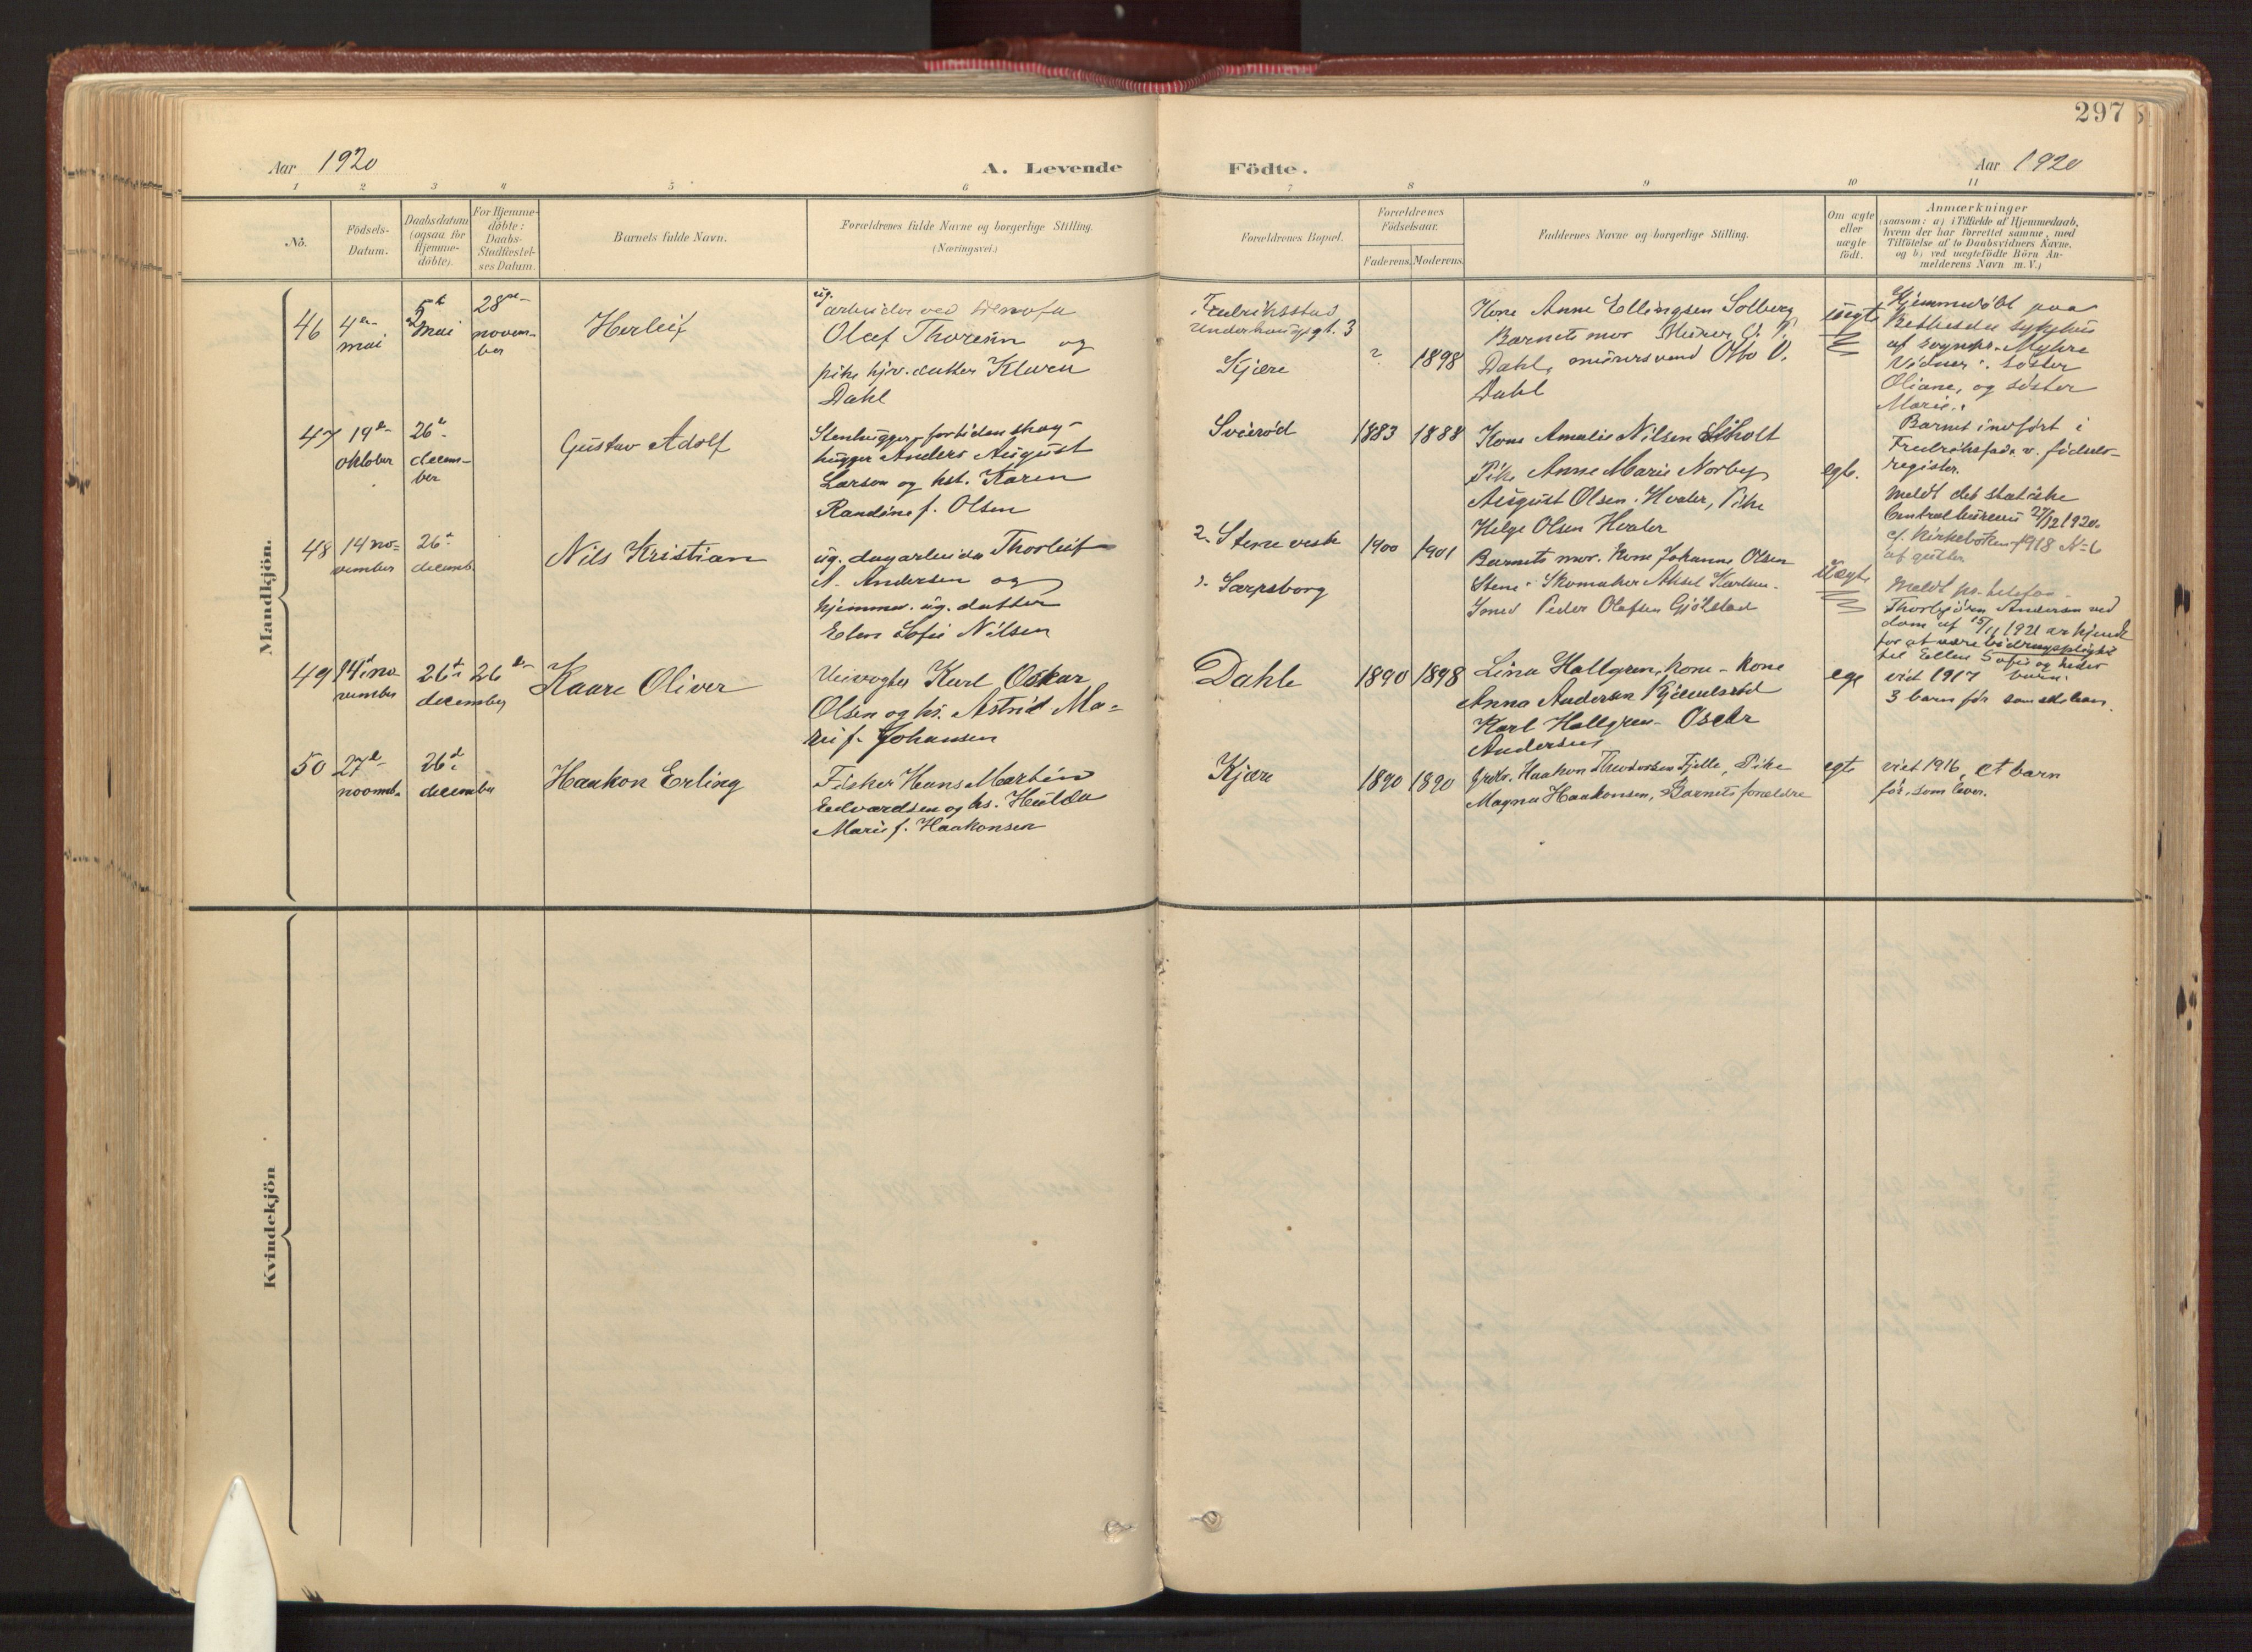 297
Aar 1920
A. Levende
Födte.
Aar 1920
1 2 3 4 5 6 7 8 9 10 11
No.
Födsels-
Datum.
Daabsdatum
(ogsaa for
Hjemme-
döbte).
For Hjemme-
döbte:
Daabs-
Stadfæstel-
ses Datum.
Barnets fulde Navn.
Forældrenes fulde Navne og borgerlige Stilling.
(Næringsvei.)
Forældrenes Bopæl.
Forældrenes
Födselsaar.
Faderens. Moderens.
Faddernes Navne og borgerlige Stilling.
Om ægte
eller
uægte
födt.
Anmærkninger
(saasom: a) i Tilfælde af Hjemmedaab,
hvem der har forrettet samme, med
Tilföielse af to Daabsvidners Navne,
og b) ved uægtefödte Börn An-
melderens Navn m. V.)
Mandkjön.
46
4de
mai
5te
mai
28de
novem-
ber
Herleif
ug.
arbeider ved Denofa
Olaf Thoresen og
pike hjv. datter Klara
Dahl
Fredriksstad
3
Kjære
?
1898
Kone Anne Ellingsen Solberg
Barnets mor
Dahl, Otto V.
Dahl
uegte
Hjemmedöbt paa
Bethesda sykehus
af sognepr. Myhre
Vidner: söster
Oliane, og söster
Marie.
Barnet indfört i
Fredriksstads v. födsels-
register.
47
19de
oktober
26de
decem-
ber
Gustav Adolf
Stenhugger, for tiden skog-
hugger Anders August
Larsen og hst. Karen
Randine f. Olsen
Svieröd
1883
1888
Kone Amalie Nilsen
Pike Anne Marie Norby
August Olsen. Hvaler, Pike
Helge Olsen Hvaler
egte.
Meldt det statiske
Centralbureau 27/12 1920.
cf. Kirkeboken 1918 No 6
af gutter
48
14 no-
vember
26de
decemb.
Nils Kristian
ug. dagarbeider Thorleif
A. Andersen og
hjemmev. ug. datter
Elen Sofie Nilsen
2. Stene vestr
Sarpsborg
1900
1901
Barnets mor. Kone Johanne Olsen
Stene. Skomaker Aksel Karlsen.
Smed Peder Olafsen Gjölstad
Uegte
Meldt pr. telefon.
Thorbjörn Andersen ved
dom af 15/11 1921 erkjendt
for at være bidragspligtig
til Ellen Sofie og hendes
barn.
49
14de no-
vember
26de
december
26de
Kaare Oliver
Veivogter Karl Oskar
Olsen og hs. Astrid Ma-
rie f. Johansen
Dahle
1890
1898
Lina Hallgren, kone - Kone
Anna Andersen
Karl Hallgren - Oscar
Andersen
egte
viet 1917
3 barn för som alle lever.
50
27de
novemb.
26de
december
Haakon Erling
Fisker Hans Martin
Edvardsen og hs. Hulda
Marie f. Haakonsen
Kjære
1890
1890
Grdbr. Haakon Theodorsen Fjelle, Pike
Magna Haakonsen, Barnets forældre
egte
viet 1916, et barn
för, som lever.
Kvindekjön